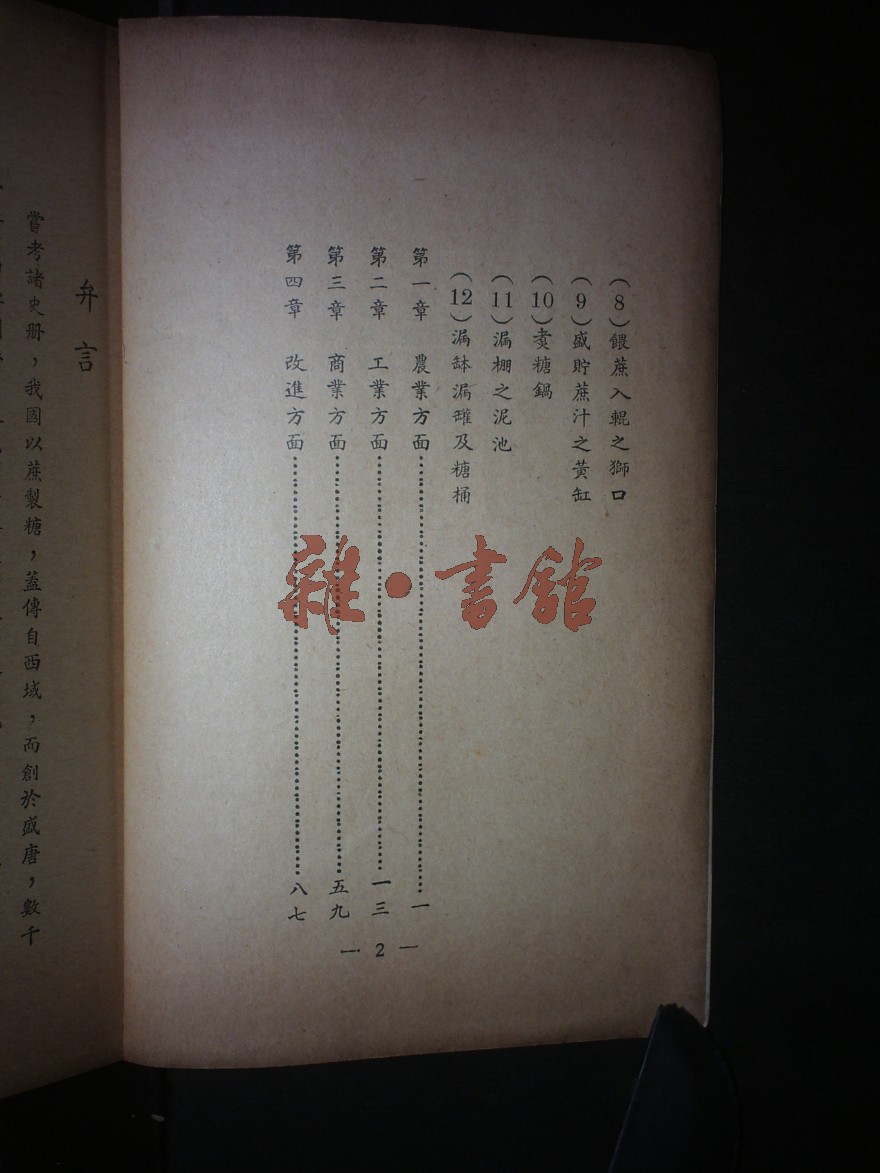 (8)餵蔗入輥之獅口
(9)盛貯蔗汁之黃缸
(10)煑糖鍋
(11)漏棚之泥池
(12)漏缽漏罐及糖桶
第一章 農業方面……一
第二章 工業方面……一三
第三章 商業方面……五九
第四章 改進方面……八七
— 2 —
雜·書館
弁言
嘗考諸史册，我國以蔗製糖，蓋傳自西域，而創於盛唐，數千